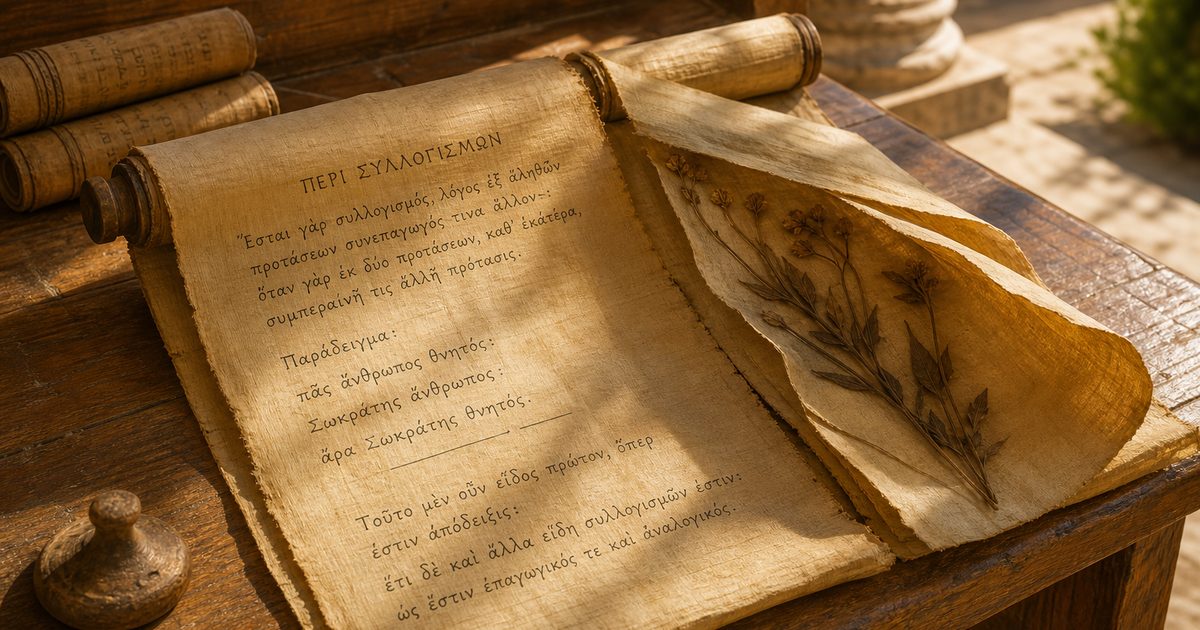 ΠΕΡΙ ΣΥΛΛΟΓΙΣΜΩΝ
Ἔσται γὰρ συλλογισμός, λόγος ἐξ ἀληθῶν
προτάσεων συνεπαγωγός τινα ἄλλον·:
ὅταν γὰρ ἐκ δύο προτάσεων, καθ' ἑκάτερα,
συμπεραίνῃ τις ἄλλη πρότασις.
Παράδειγμα:
πᾶς ἄνθρωπος θνητός:
Σωκράτης ἄνθρωπος:
ἄρα Σωκράτης θνητός.
Τοῦτο μὲν οὖν εἶδος πρῶτον, ὅπερ
ἐστιν ἀπόδειξις:
ἔτι δὲ καὶ ἄλλα εἴδη συλλογισμῶν ἐστιν:
ὡς ἔστιν ἐπαγωγικός τε καὶ ἀναλογικός.